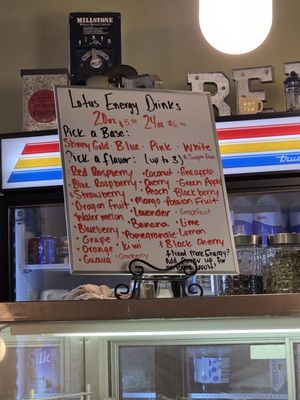 MILLSTONE
COFFEE
HOT TEA
RE
Lotus Energy Drinks
20oz $5.50 24oz $6.00
Pick a Base:
Skinny Gold · Blue · Pink · White
Pick a flavor: (up to 3) *Sugar Free
Red Raspberry · Coconut · Pineapple
Blue Raspberry · Cherry · Green Apple
Strawberry · Peach · Blackberry
Dragon fruit · Mango · Passion Fruit
Watermelon · Lavender · Grapefruit
Blueberry · Banana · Lime
Grape · Pomegranate · Lemon
Orange · Kiwi * Black Cherry
Guava · Cranberry
* Need more Energy?
Add
up for
Silk